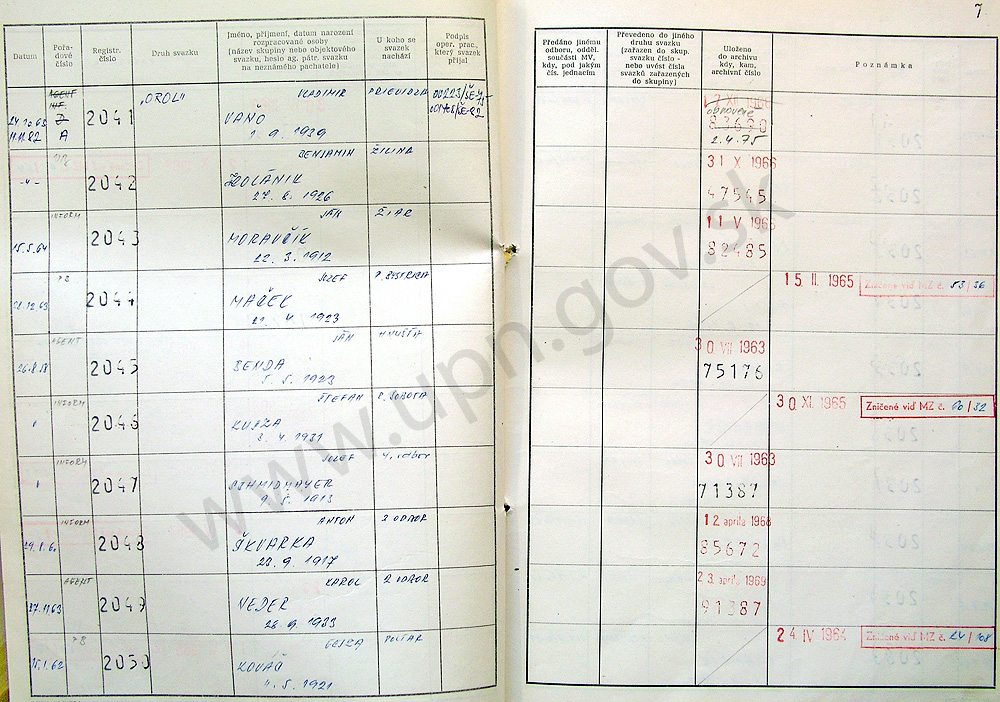 7
Datum
Pořa-
dové
číslo
Registr.
číslo
Druh svazku
Jméno, příjmení, datum narození
rozpracované osoby
(název skupiny nebo objektového
svazku, heslo ag. pátr. svazku
na neznámého pachatele)
U koho se
svazek
nachází
Podpis
oper. prac.,
který svazek
přijal
Předáno jinému
odboru, odděl.
součásti MV,
kdy, pod jakým
čís. jednacím
Převedeno do jiného
druhu svazku
(zařazen do skup.
svazku číslo -
nebo uvést čísla
svazků zařazených
do skupiny)
Uloženo
do archivu
kdy, kam,
archivní číslo
Poznámka
A
2041
„OROL"
VLADIMIR
VAŇO
1. 9. 1939
PRIEVIDZA
17 XII 1966
obnovené
83690
2.4.75
-"-
2042
BENJAMIN
27. 8. 1926
ŽILINA
31 X 1966
47545
15.5.64
INFORM
2043
JÁN
MORAVČÍK
22. 3. 1912
ŽIAR
11 V 1965
82485
PS
2044
JOZEF
MAČEK
21. 4. 1923
P. BYSTRICA
15. II. 1965
Zničené viď MZ č. 53/36
26.8.58
AGENT
2045
JÁN
BENDA
5. 5. 1923
HNÚŠŤA
30 VII 1963
75176
INFORM
2046
ŠTEFAN
3. 4. 1931
R. SOBOTA
30 XI. 1965
Zničené viď MZ č. 60/32
INFORM
2047
JOZEF
SCHMIDMAYER
9. 5. 1913
4. odbor
30 VII 1963
71387
INFORM
2048
ANTON
ŠKVARKA
28. 9. 1917
3 ODBOR
12 apríla 1968
85672
AGENT
2049
KAROL
VEDER
28. 9. 1933
2 ODBOR
23. apríla 1969
91387
PS
2050
GEJZA
KOVÁČ
4. 5. 1921
POLTÁR
24 IV 1964
Zničené viď MZ č. 24/108
www.upn.gov.sk